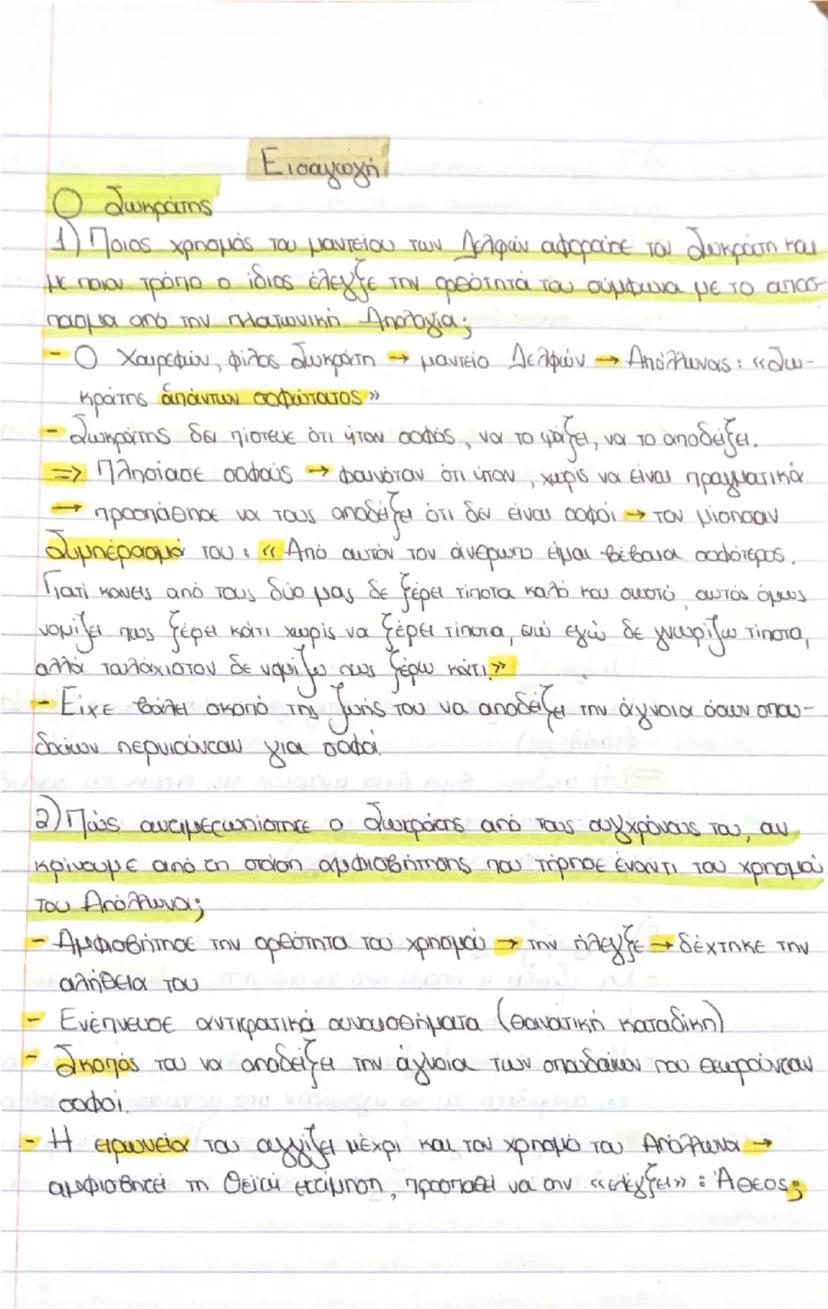 Εισαγωγή
Ο Σωκράτης
1) Ποιος χρησμός του μαντείου των Δελφών αφορούσε τον Σωκράτη και
με ποιον τρόπο ο ίδιος έλεγξε την ορθότητά του σύμφωνα με το απόσ-
πασμα από την πλατωνική Απολογία;
- Ο Χαιρεφών, φίλος Σωκράτη → μαντείο Δελφών → Απόλλωνας: «Σω-
κράτης ἁπάντων σοφώτατος»
- Σωκράτης δεν πίστευε ότι ήταν σοφός, να το ψάξει, να το αποδείξει.
⇒ Πλησίασε σοφούς → φαινόταν ότι ήταν, χωρίς να είναι πραγματικά
→ προσπάθησε να τους αποδείξει ότι δεν είναι σοφοί → τον μίσησαν
Συμπέρασμά του: «Από αυτόν τον άνθρωπο είμαι βέβαια σοφότερος.
Γιατί κανείς από τους δύο μας δε ξέρει τίποτα καλό και σωστό, αυτός όμως
νομίζει πως ξέρει κάτι χωρίς να ξέρει τίποτα, ενώ εγώ δε γνωρίζω τίποτα,
αλλά τουλάχιστον δε νομίζω πως ξέρω κάτι.»
- Είχε βάλει σκοπό της ζωής του να αποδείξει την άγνοια όσων σπου-
δαίων περνιούνταν για σοφοί.
2) Πώς αντιμετωπίστηκε ο Σωκράτης από τους συγχρόνους του, αν
κρίνουμε από τη στάση αμφισβήτησης που τήρησε έναντι του χρησμού
του Απόλλωνα;
- Αμφισβήτησε την ορθότητα του χρησμού → την ήλεγξε → δέχτηκε την
αλήθεια του
- Ενέπνευσε αντικρατικά συναισθήματα (θανατική καταδίκη)
- Σκοπός του να αποδείξει την άγνοια των σπουδαίων που θεωρούνταν
σοφοί.
- Η ειρωνεία του αγγίζει μέχρι και τον χρησμό του Απόλλωνα →
αμφισβητεί τη θεϊκή εκτίμηση, προσπαθεί να την «ελέγξει»: Άθεος;